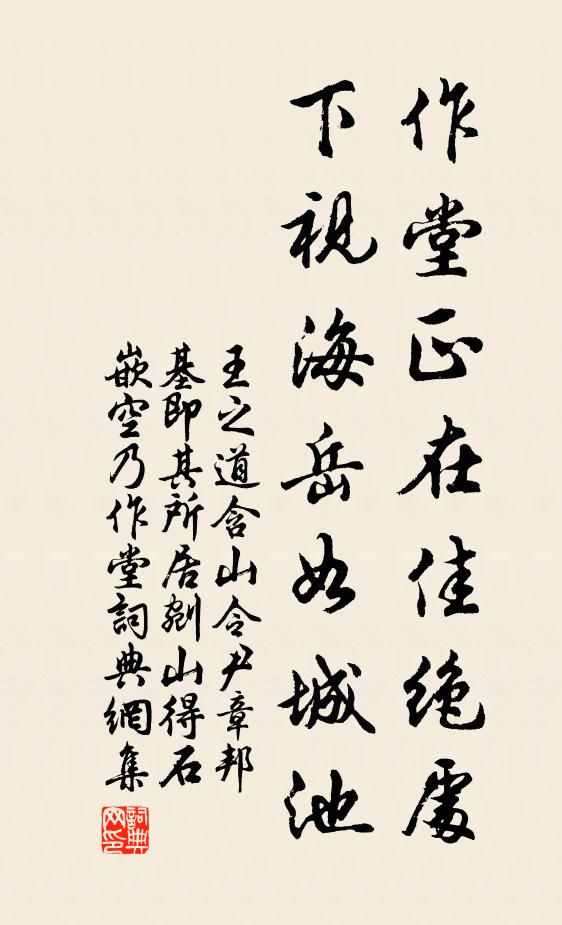 作堂正在佳绝處
下視海岳如城池
王之道含山令尹章邦
基即其所居剜山得石
嵌空乃作堂詞典網集
詞典网印